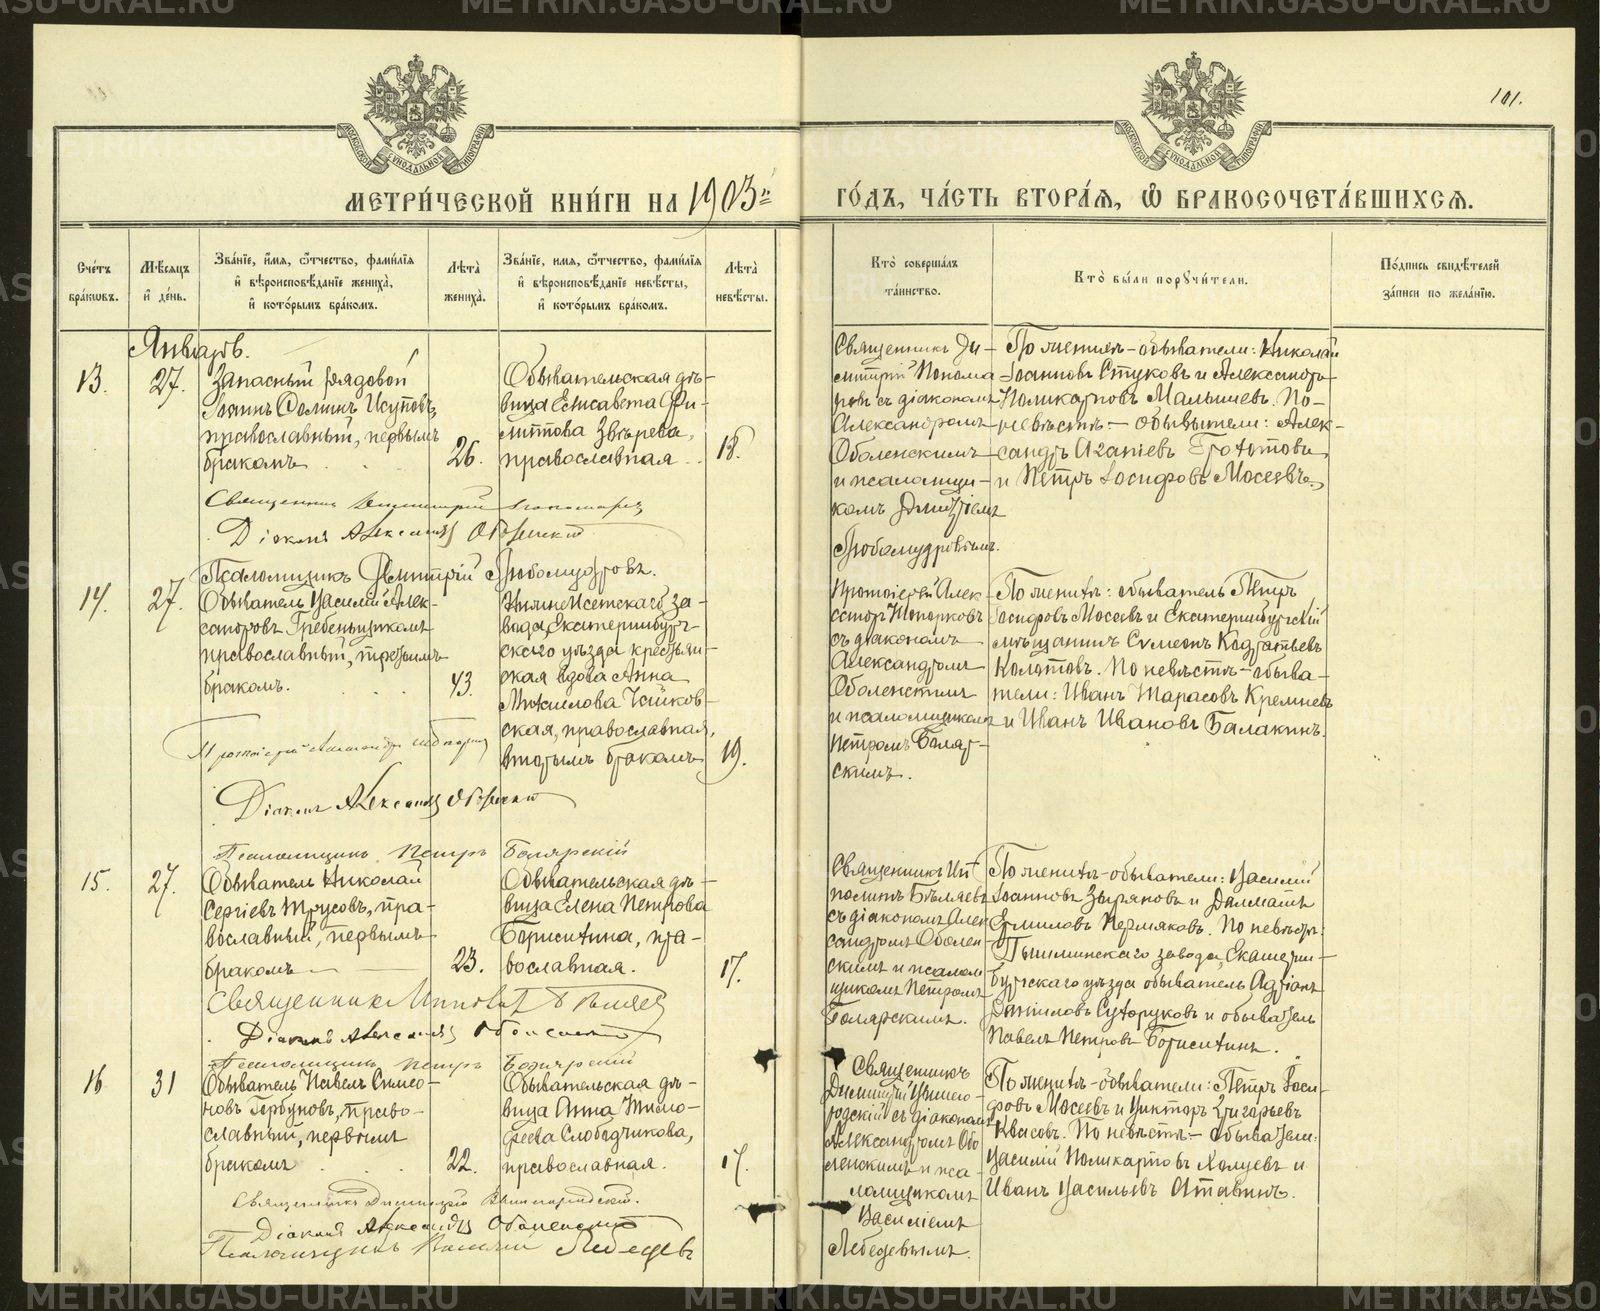 METRIKI.GASO-URAL.RU
101.
МОСКОВСКОЙ СѴНОДАЛЬНОЙ ТИПОГРАФІИ
МОСКОВСКОЙ СѴНОДАЛЬНОЙ ТИПОГРАФІИ
МЕТРИ́ЧЕСКОЙ КНИ́ГИ НА 1903й
ГО́ДЪ, ЧА́СТЬ ВТОРА́Я, Ѽ БРАКОСОЧЕТА́ВШИХСЯ.
Сче́тъ бра́кѡвъ.
Мѣ́сяцъ и҆ де́нь.
Зва́нїе, и҆́мя, ѻ҆́тчество, фами́лїя
и҆ вѣроисповѣ́данїе жениха̀,
и҆ кото́рымъ бра́комъ.
Лѣ́та жениха̀.
Зва́нїе, и҆мя, ѻ҆́тчество, фами́лїя
и҆ вѣроисповѣ́данїе невѣ́сты,
и҆ кото́рымъ бра́комъ.
Лѣ́та невѣ́сты.
Кто̀ соверша́лъ
та́инство.
Кто̀ бы́ли порꙋчи́тели.
По́дпись свидѣ́телей
за́писи по жела́нїю.
Январь.
13.
27.
Запасный рядовой
Іоаннъ Фоминъ Исуповъ,
православный, первымъ
бракомъ
26.
Обывательская дѣ-
вица Елисавета Фи-
липпова Звѣрева,
православная
18.
Священникъ Ди-
митрій Понома
ревъ съ діакономъ
Александромъ
Оболенскимъ
и псаломщи-
комъ Димитріемъ
Любомудровымъ.
По женихѣ - обыватели: Николай
Іоанновъ Стуковъ и Александръ
Поликарповъ Малышевъ. По
невѣстѣ - обыватели: Алек-
сандръ
и Петръ Іосифовъ Мосеевъ.
Священникъ Димитрій Пономаревъ
Діаконъ Александръ Оболенскій
Псаломщикъ Димитрій Любомудровъ.
14.
27.
Обыватель Василій Алек-
сандровъ Гребенщиковъ
православный, третьимъ
бракомъ.
43.
Нижнеисетскаго за-
вода, Екатеринбург-
скаго уѣзда крестьян-
ская вдова Анна
Михаилова Чайков-
ская, православная,
вторымъ бракомъ
19.
Протоіерей Алек
сандръ Топорковъ
съ діакономъ
Александромъ
Оболенскимъ
и псаломщикомъ
Петромъ Бояр-
скимъ.
По женихѣ: обыватель Петръ
Іосифовъ Мосеевъ и Екатеринбургскій
мѣщанинъ Сумеонъ Кодратьевъ
Колотовъ. По невѣстѣ - обыва-
тели: Иванъ Тарасовъ Кремлевъ
и Иванъ Ивановъ Балакинъ.
Протоіерей Александръ Топорковъ
Діаконъ Александръ Оболенскій
Псаломщикъ Петръ Боярскій
15.
27.
Обыватель Николай
Сергіевъ Трусовъ, пра-
вославный, первымъ
бракомъ
23.
Обывательская дѣ-
вица Елена Петрова
Борисихина, пра-
вославная.
17.
Священникъ Ип
политъ Бѣляевъ
съ діакономъ Алек
сандромъ Оболен-
скимъ и псалом
щикомъ Петромъ
Боярскимъ.
По женихѣ - обыватели: Василій
Іоанновъ Зыряновъ и Далматъ
Ермиловъ Пермяковъ. По невѣстѣ:
Пышминскаго завода, Екатерин-
бургскаго уѣзда обыватель Адріанъ
Даниловъ Сухоруковъ и обыватель
Павелъ Петровъ Борисихинъ.
Священникъ Ипполитъ Бѣляев
Діаконъ Александръ Оболенскій
Псаломщикъ Петръ Боярскій
16
31
Обыватель Павелъ Симео-
новъ Горбуновъ, право-
славный, первымъ
бракомъ
22.
Обывательская дѣ-
вица Анна Тимо-
феева Слободчикова,
православная.
17.
Священникъ
Димитрій
съ діакономъ
Александромъ Обо
ленскимъ и пса
ломщикомъ
Василіемъ
Лебедевымъ.
По женихѣ - обыватели: Петръ Іоси-
фовъ Мосеевъ и Викторъ Григорьевъ
Квасовъ. По невѣстѣ - обыватели:
Василій Поликарповъ Холуевъ и
Иванъ Васильевъ Отавинъ.
Священникъ Димитрій
Діаконъ Александръ Оболенскій
Псаломщикъ Василій Лебедевъ
METRIKI.GASO-URAL.RU